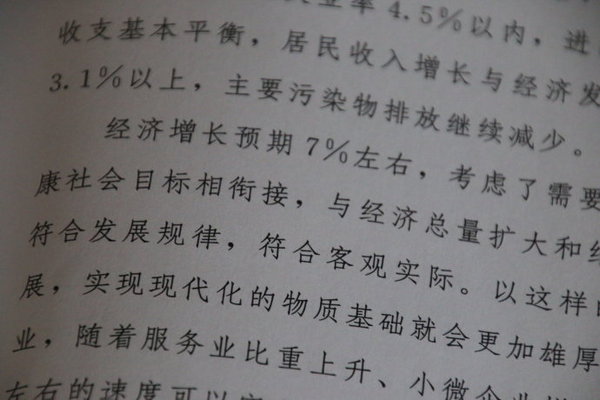 业率4.5%以内，进
收支基本平衡，居民收入增长与经济发
3.1%以上，主要污染物排放继续减少。
经济增长预期7%左右，考虑了需要
康社会目标相衔接，与经济总量扩大和结
符合发展规律，符合客观实际。以这样的
展，实现现代化的物质基础就会更加雄厚
业，随着服务业比重上升、小微企业增
左右的速度可以实